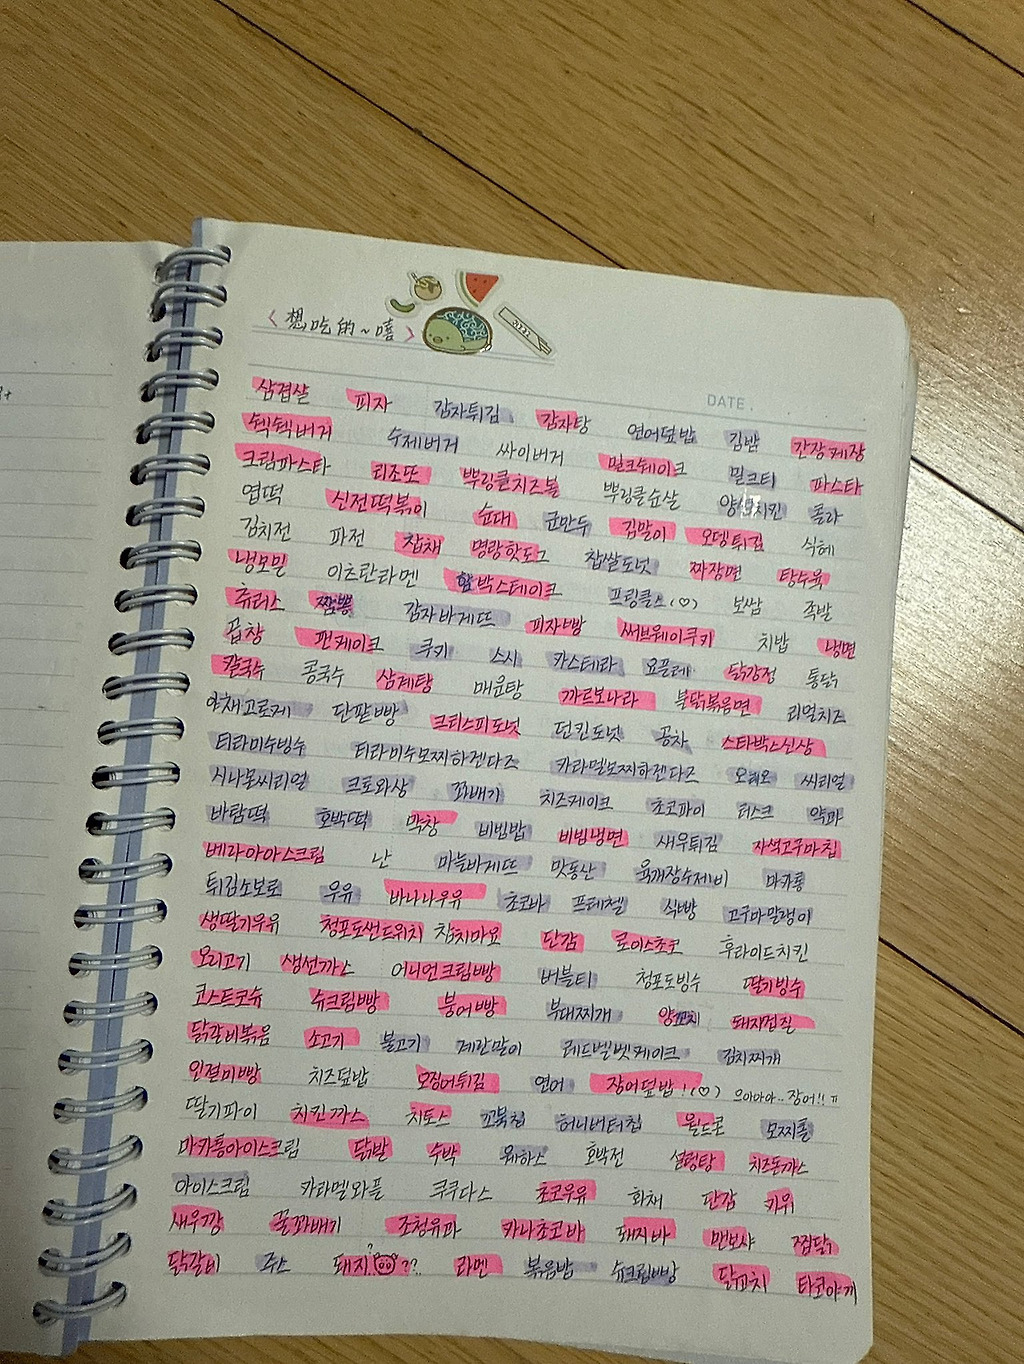 <想吃的~嘻>
DATE.
삼겹살 피자 감자튀김 감자탕 연어덮밥 김밥 간장게장
쉑쉑버거 수제버거 싸이버거 밀크쉐이크 밀크티 파스타
크림파스타 리조또 뿌링클치즈볼 뿌링클순살 양념치킨 콜라
엽떡 신전떡볶이 순대 군만두 김말이 오뎅튀김 식혜
김치전 파전 잡채 명랑핫도그 찹쌀도넛 짜장면 탕수육
냉모밀 이츠탄라멘 함박스테이크 프링클스(♡) 보쌈 족발
츄러스 짬뽕 감자바게뜨 피자빵 써브웨이쿠키 치밥 냉면
곱창 팬케이크 쿠키 스시 카스테라 요플레 닭강정 통닭
칼국수 콩국수 삼계탕 매운탕 까르보나라 불닭볶음면 리얼치즈
야채고로케 단팥빵 크리스피도넛 던킨도넛 공차 스타벅스신상
티라미수빙수 티라미수모찌하겐다즈 카라멜모찌하겐다즈 오레오 씨리얼
시나몬씨리얼 크로와상 꽈배기 치즈케이크 초코파이 러스크 약과
바람떡 호박떡 막창 비빔밥 비빔냉면 새우튀김 자색고구마칩
베라아이스크림 난 마늘바게뜨 맛동산 육개장수제비 마카롱
튀김소보로 우유 바나나우유 초코바 프레첼 식빵 고구마말랭이
생딸기우유 청포도샌드위치 참치마요 단감 로이스초코 후라이드치킨
오리고기 생선까스 어니언크림빵 버블티 청포도빙수 딸기빙수
코스트코슈 슈크림빵 붕어빵 부대찌개 양꼬치 돼지껍질
닭갈비볶음 소고기 불고기 계란말이 레드벨벳케이크 김치찌개
인절미빵 치즈덮밥 오징어튀김 연어 장어덮밥!(♡) 으아아아..장어!!ㅠ
딸기파이 치킨까스 치토스 꼬북칩 허니버터칩 월드콘 모찌롤
마카롱아이스크림 닭발 수박 웨하스 호박전 설렁탕 치즈돈까스
아이스크림 카라멜와플 쿠쿠다스 초코우유 화채 단감 키위
새우깡 꿀꽈배기 조청유과 카나초코바 돼지바 맨보샤 찜닭
닭갈비 주스 돼지??? 라멘 볶음밥 슈크림빵 닭꼬치 타코야끼